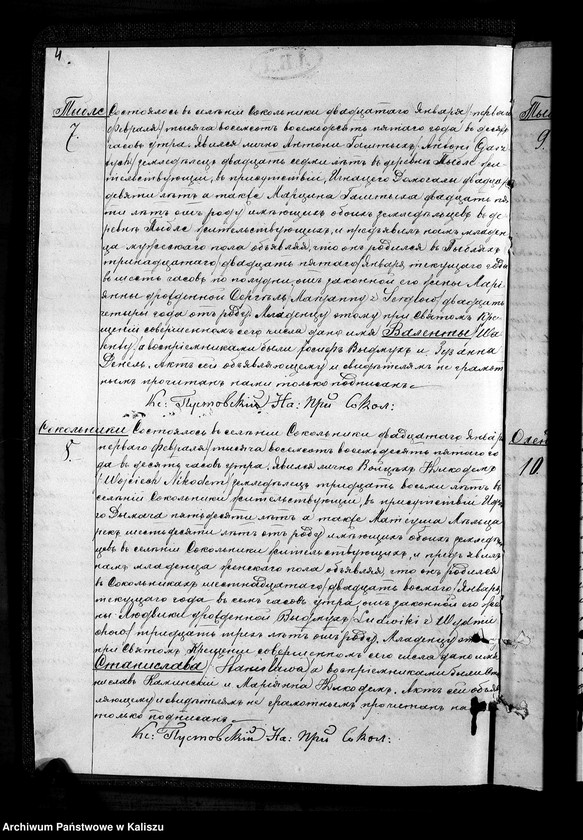 4.
Тыблe
7.
Состоялось въ селѣніи Сокольники двадцатаго Января/перваго
Февраля/тысяча восемсотъ восемдесять пятаго года въ десять
часовъ утра. Явился лично Антони
земледѣлецъ двадцать седми лѣтъ въ деревнѣ
жительствующій, въ присутствіи, Игнацего двадцать
девяти лѣтъ а также Марцина двадцать пя-
ти лѣтъ отъ роду имѣющихъ обоихъ земледѣльцевъ въ де-
ревнѣ жительствующихъ, и предъявилъ намъ младен-
ца мужескаго пола объявляя, что онъ родился въ
тринадцатаго/двадцать пятаго/Января, текущаго года
въ шесть часовъ по полудни, отъ законной его жены Марі-
янны урожденной двадцать
четыри года отъ роду. Младенцу этому при Святомъ Кре-
щеніи совершенномъ сего числа дано имя Валенты/Wa-
lenty/ а воспріемниками были Іосифъ и Зузанна
Актъ сей объявляющему и свидѣтелямъ не грамот-
нымъ прочитанъ нами только подписанъ
Кс: Пустовскій На: При Сокол:
Сокольники
5.
Состоялось въ селѣніи Сокольники двадцатаго Января/
перваго Февраля/тысяча восемсотъ восемьдесять пятаго го-
да въ десять часовъ утра, явился лично Войцѣхъ Никодемъ
/Wojciech Nikodem/ земледѣлецъ тридцать восьми лѣтъ въ
селѣніи Сокольники жительствующій, въ присутствіи
Дымача пятьдесяти лѣтъ а также Матеуша
шестьдесяти лѣтъ отъ роду имѣющихъ обоихъ земледѣль-
цевъ въ селѣніи Сокольники жительствующихъ, и предъявилъ
намъ младенца женскаго пола объявляя, что онъ родился
въ Сокольникахъ шестнадцатаго/двадцать восмаго/Января
текущаго года въ семъ часовъ утра, отъ законной его же-
ны Людвики урожденной /Ludwiki z
тридцать трехъ лѣтъ отъ роду, Младенцу этому
при Святомъ Крещеніи совершенномъ сего числа дано имя
Станислава/Stanisława/ а воспріемниками были Ста-
ниславъ Каминскій и Маріянна Никодемъ. Актъ сей объяв-
ляющему и свидѣтелямъ не грамотнымъ прочитанъ на
только подписанъ
Кс: Пустовскій На: При Сокол:
9.
10.
Archiwum Państwowe w Kaliszu